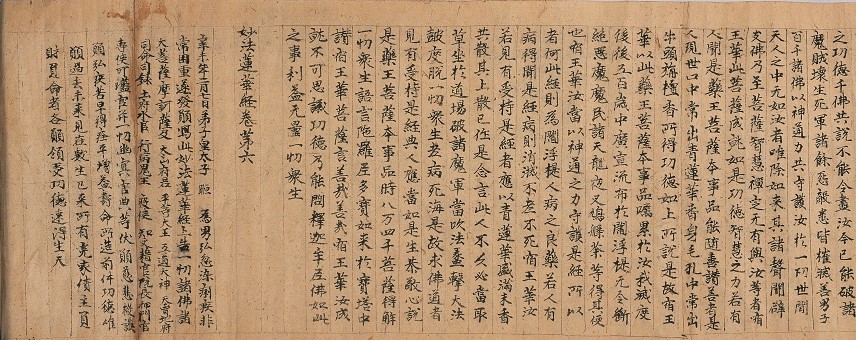 之功德千佛共說不能令盡汝今已能破諸
魔賊壞生死軍諸餘怨敵悉皆摧滅善男子
百千諸佛以神通力共守護汝於一切世間
天人之中无如汝者唯除如來其諸聲聞辟
支佛乃至菩薩智慧禪定无有與汝等者宿
王華此菩薩成就如是功德智慧之力若有
人聞是藥王菩薩本事品能隨喜讚善者是
人現世口中常出青蓮華香身毛孔中常出
牛頭栴檀香所得功德如上所說是故宿王
華以此藥王菩薩本事品囑累於汝我滅度
後後五百歲中廣宣流布於閻浮提无令斷
絕惡魔魔民諸天龍夜叉鳩槃荼等得其便
也宿王華汝當以神通之力守護是經所以
者何此經則為閻浮提人病之良藥若人有
病得聞是經病則消滅不老不死宿王華汝
若見有受持是經者應以青蓮華盛滿末香
供散其上散已作是念言此人不久必當取
草坐於道場破諸魔軍當吹法蠡擊大法
鼓度脫一切眾生老病死海是故求佛道者
見有受持是經典人應當如是生恭敬心說
是藥王菩薩本事品時八万四千菩薩得解
一切眾生語言陀羅尼多寶如來於寶塔中
讚宿王華菩薩言善哉善哉宿王華汝成
就不可思議功德乃能問釋迦牟尼佛如此
之事利益无量一切眾生
妙法蓮華經卷第六
辛未年二月七日弟子皇太子暅為男弘忽染痢疾非
常困重遂發願寫此妙法蓮華經上告一切諸佛諸
大菩薩摩訶薩及太山府君平等大王五道大神天曹地府
司命司錄土府水官行病鬼王疫使知文籍官院長押門官
專使可嚂官并一切幽冥官典等伏願慈悲救護
願弘疾苦早得痊平增益壽命所造前件功德唯
願過去未來見在數生已來所有冤家債主負
財負命者各願領受功德速得生天